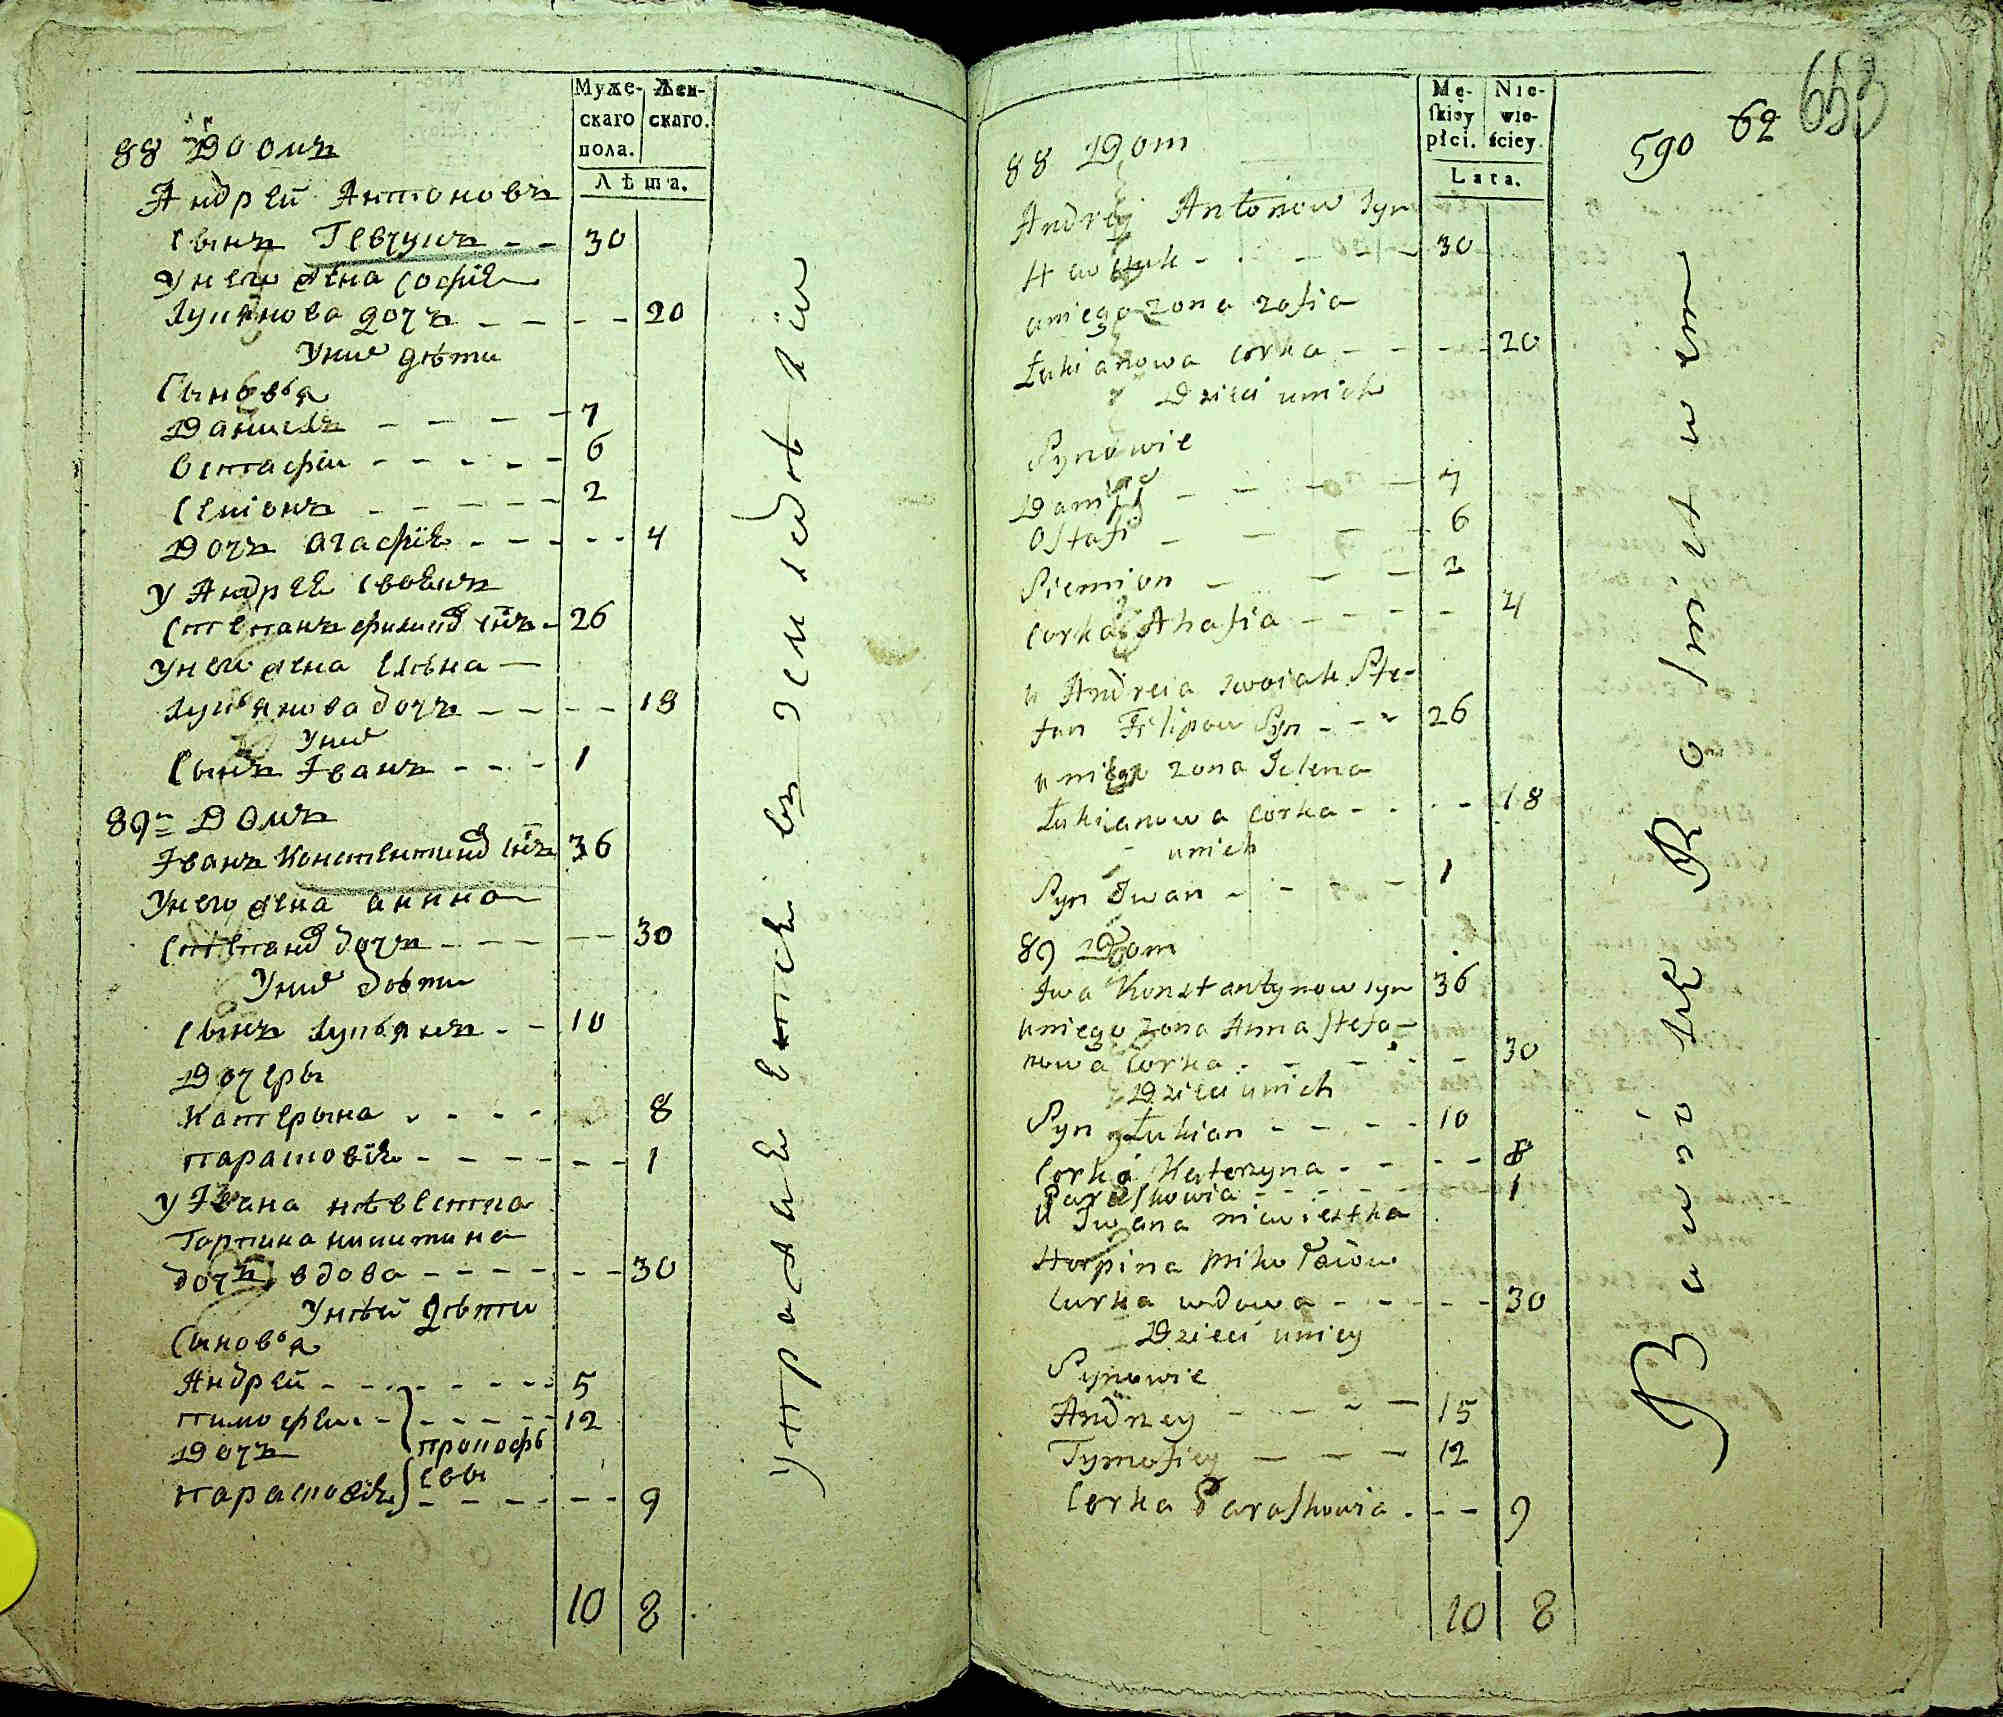 Муже-
скаго
пола.
Жен-
скаго.
Лѣта.
88 Домъ
Андрей Антоновъ
сынъ Гевчукъ - - 30
у него жена софия
лукянова дочъ - - - - 20
у них дѣти
Сыновья
Данилъ - - - - 7
Остафии - - - - - 6
Семіонъ - - - - - 2
Дочъ агафия - - - - - 4
у Андрея своякъ
степанъ филипов снъ - 26
у него жена елена —
лукьянова дочъ - - - - 18
у них
Сынъ Іванъ - - - 1
89 Домъ
Іванъ Константинов снъ 36
у него жена анна
степанов дочъ - - - - - 30
у них дѣти
сынъ лукьянъ - - 10
Дочеры
Катерына - - - - 8
парасковия - - - - - - 1
у Івана невестка
Горпина никитина
дочъ вдова - - - - - - 30
у ней дѣти
Сыновья
Андрей - - - - - - - 5
тимофеи - - - - - - 12
Дочъ
прокофьевы
парасковия - - - - - - 9
10 8
Mę-
ſkiey
płci.
Nie-
wie-
ściey.
Lata.
590 62 653
88 Dom
Andrej Antonow Syn
30
u niego zona zofia
Łukianowa corka - - - - 20
Dzieci unich
Synowie
Daniło - - - - 7
Ostafi - - - - 6
Siemion - - - 2
Corka Ahafia - - - - 4
u Andreia swoiak Ste-
fan Filipow Syn - - - 26
u niego zona Jelena
Łukianowa corka - - - - 18
unich
Syn Iwan - - - - 1
89 Dom
Iwa Konstantynow syn 36
uniego zona Anna stefa-
nowa Corka - - - - - 30
Dzieci unich
Syn Łukian - - - - 10
Corka Katerzyna - - - - 8
Paraskowia - - - - - 1
u Iwana niewiestka
Horpina Mikołaiow
Curka wdowa - - - - - 30
Dzieci uniey
Synowie
Andrzey - - - - 15
Tymofiey - - - 12
Corka Paraskowia - - - 9
10 8